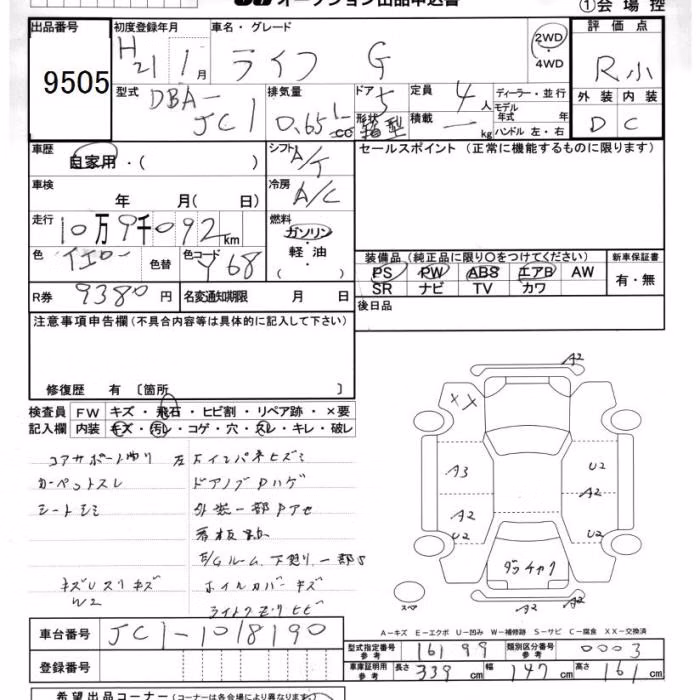 オークション出品申込書
①会場控
出品番号 初度登録年月 車名・グレード 評価点
9505 H21 1月 ライフ G 2WD 4WD R小
型式 DBA-JC1 排気量 0.65L cc ドア 5 形状 箱型 定員 4人 積載 — kg ディーラー・並行 モデル年式 年 ハンドル 左・右 外装 D 内装 C
車歴 自家用・( ) シフト A/T セールスポイント(正常に機能するものに限ります)
車検 年 月( 日) 冷房 A/C
走行 10万9千092km 燃料 ガソリン 軽油 ( )
色 イエロー 色替 色コード Y68 装備品(純正品に限り○をつけてください) 新車保証書
PS PW ABS エアB AW 有・無
SR ナビ TV カワ
R券 9380円 名変通知期限 月 日 後日品
注意事項申告欄(不具合内容等は具体的に記入して下さい)
修復歴 有 〔箇所 〕
検査員 FW キズ・飛石・ヒビ割・リペア跡・×要
記入欄 内装 キズ・汚レ・コゲ・穴・スレ・キレ・破レ
コアサポートゆり
カーペットスレ ドアノブPハゲ
シートシミ 外装一部Pアセ
看板跡
E/Gルーム、下廻り、一部S
キズUスリキズ ホイルカバーキズ
W2 ライトクモリヒビ
A2
XX
A3 U2
A2
A2
U2 U2
ダッチャク
スペア A2 A2
A-キズ E-エクボ U-凹み W-補修跡 S-サビ C-腐食 XX-交換済
車台番号 JC1-1018190
登録番号
型式指定番号 参考 16199 類別区分番号 参考 0003
車庫証明用 参考 長さ 339cm 幅 147cm 高さ 161cm
希望出品コーナー(コーナーは各会場により異なります)